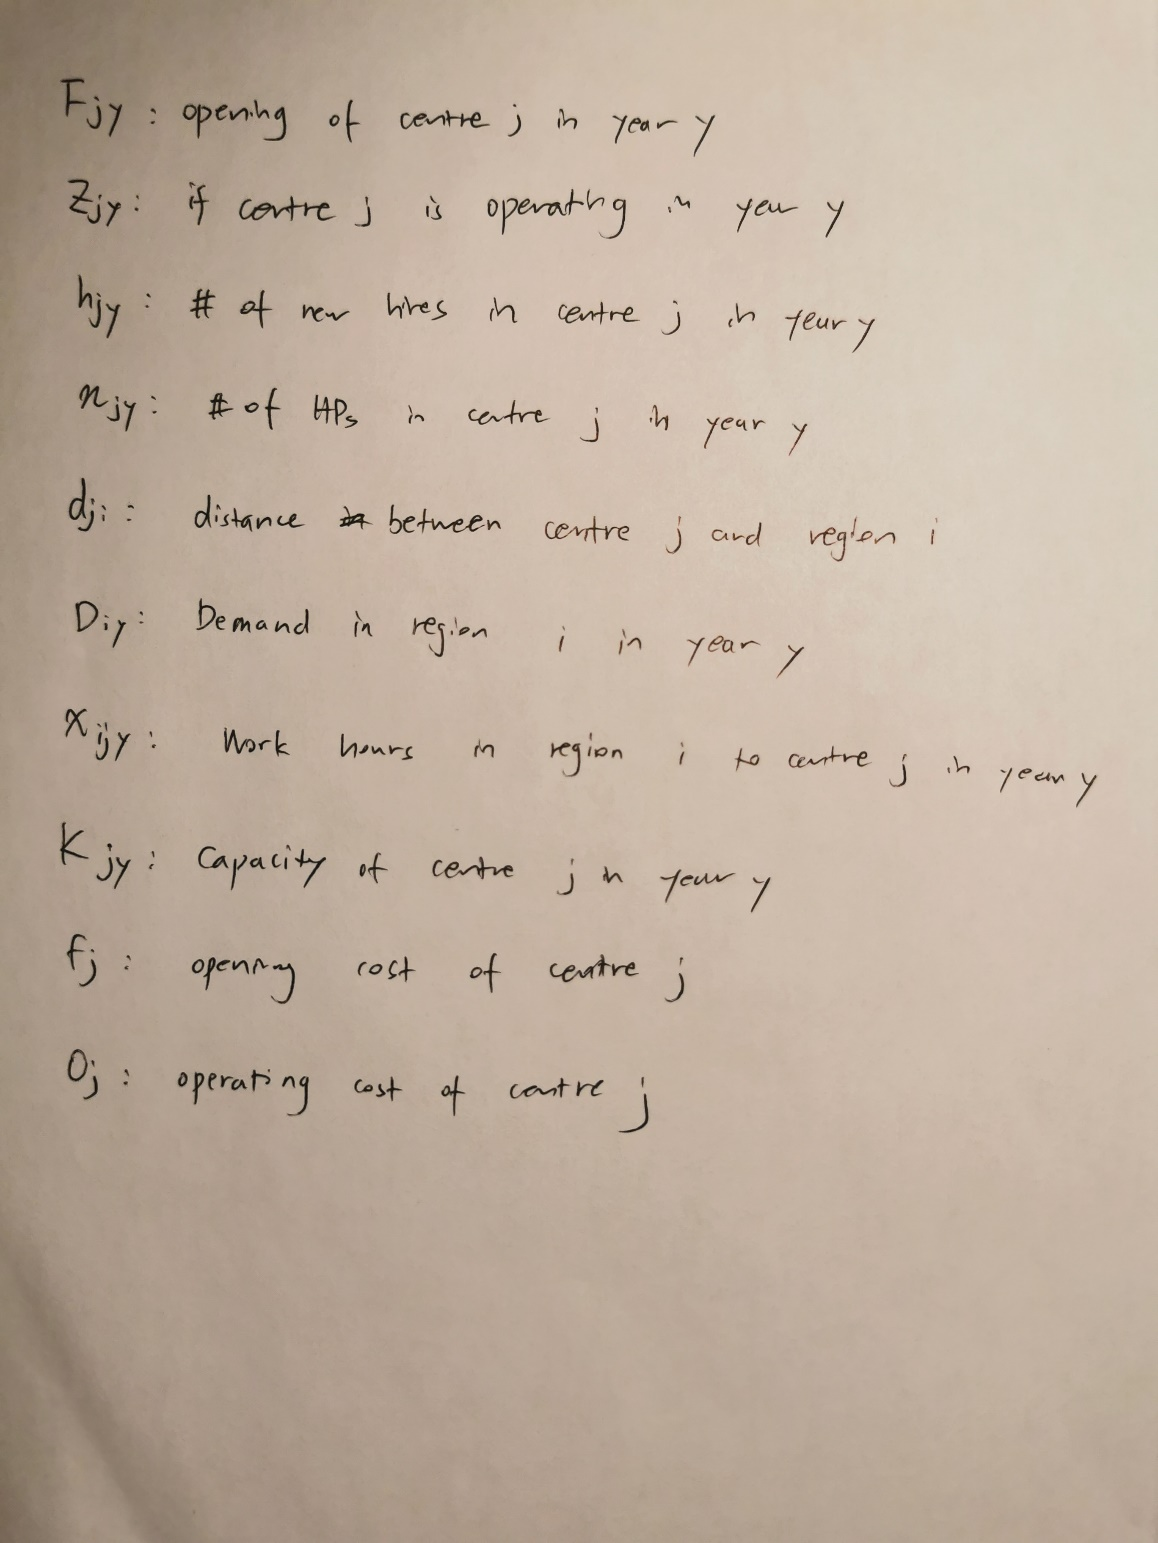 Fjy : opening of centre j in year y
Zjy : if centre j is operating in year y
hjy : # of new hires in centre j in year y
njy : # of HPs in centre j in year y
dji : distance between centre j and region i
Diy : Demand in region i in year y
xijy : Work hours in region i to centre j in year y
Kjy : Capacity of centre j in year y
fj : opening cost of centre j
Oj : operating cost of centre j